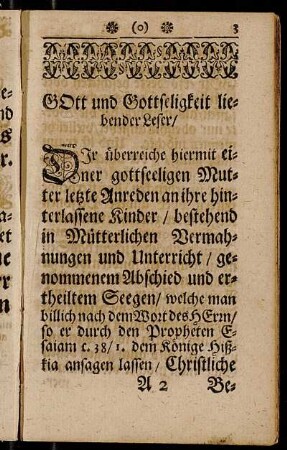 (0) 3
GOtt und Gottseligkeit lie-
bender Leser/
DIr überreiche hiermit ei-
ner gottseeligen Mut-
ter letzte Anreden an ihre hin-
terlassene Kinder / bestehend
in Mütterlichen Vermah-
nungen und Unterricht / ge-
nommenem Abschied und er-
theiltem Seegen / welche man
billich nach dem Wort des HErrn/
so er durch den Propheten E-
saiam c. 38/1. dem Könige Hiß-
kia ansagen lassen / Christliche
A 2 Be-